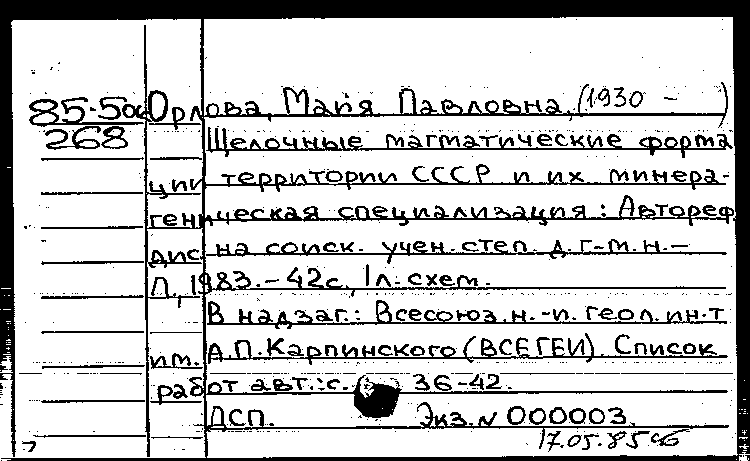 85-5дсп Орлова, Майя Павловна, (1930 - )
268 Щелочные магматические форма
ции территории СССР и их минера-
геническая специализация: Автореф.
дис. на соиск. учен. степ. д. г.-м. н. —
Л., 1983. - 42 с., 1 л. схем.
В надзаг.: Всесоюз. н.-и. геол. ин-т
им. А.П. Карпинского (ВСЕГЕИ). Список
работ авт.: с. 36-42.
ДСП. Экз. N 000003.
17.05.85